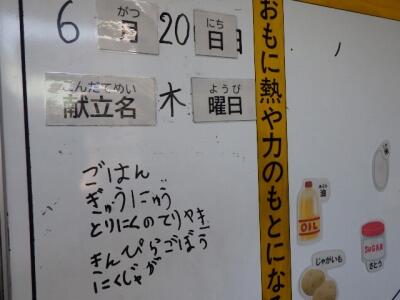 6 がつ月 20 にち日
こんだてめい献立名 木 ようび曜日
ごはん
ぎゅうにゅう
とりにくのてりやき
きんぴらごぼう
にくじゃが
おもに熱や力のもとになる
あぶら油
OIL
SUGAR
さとう
じゃがいも